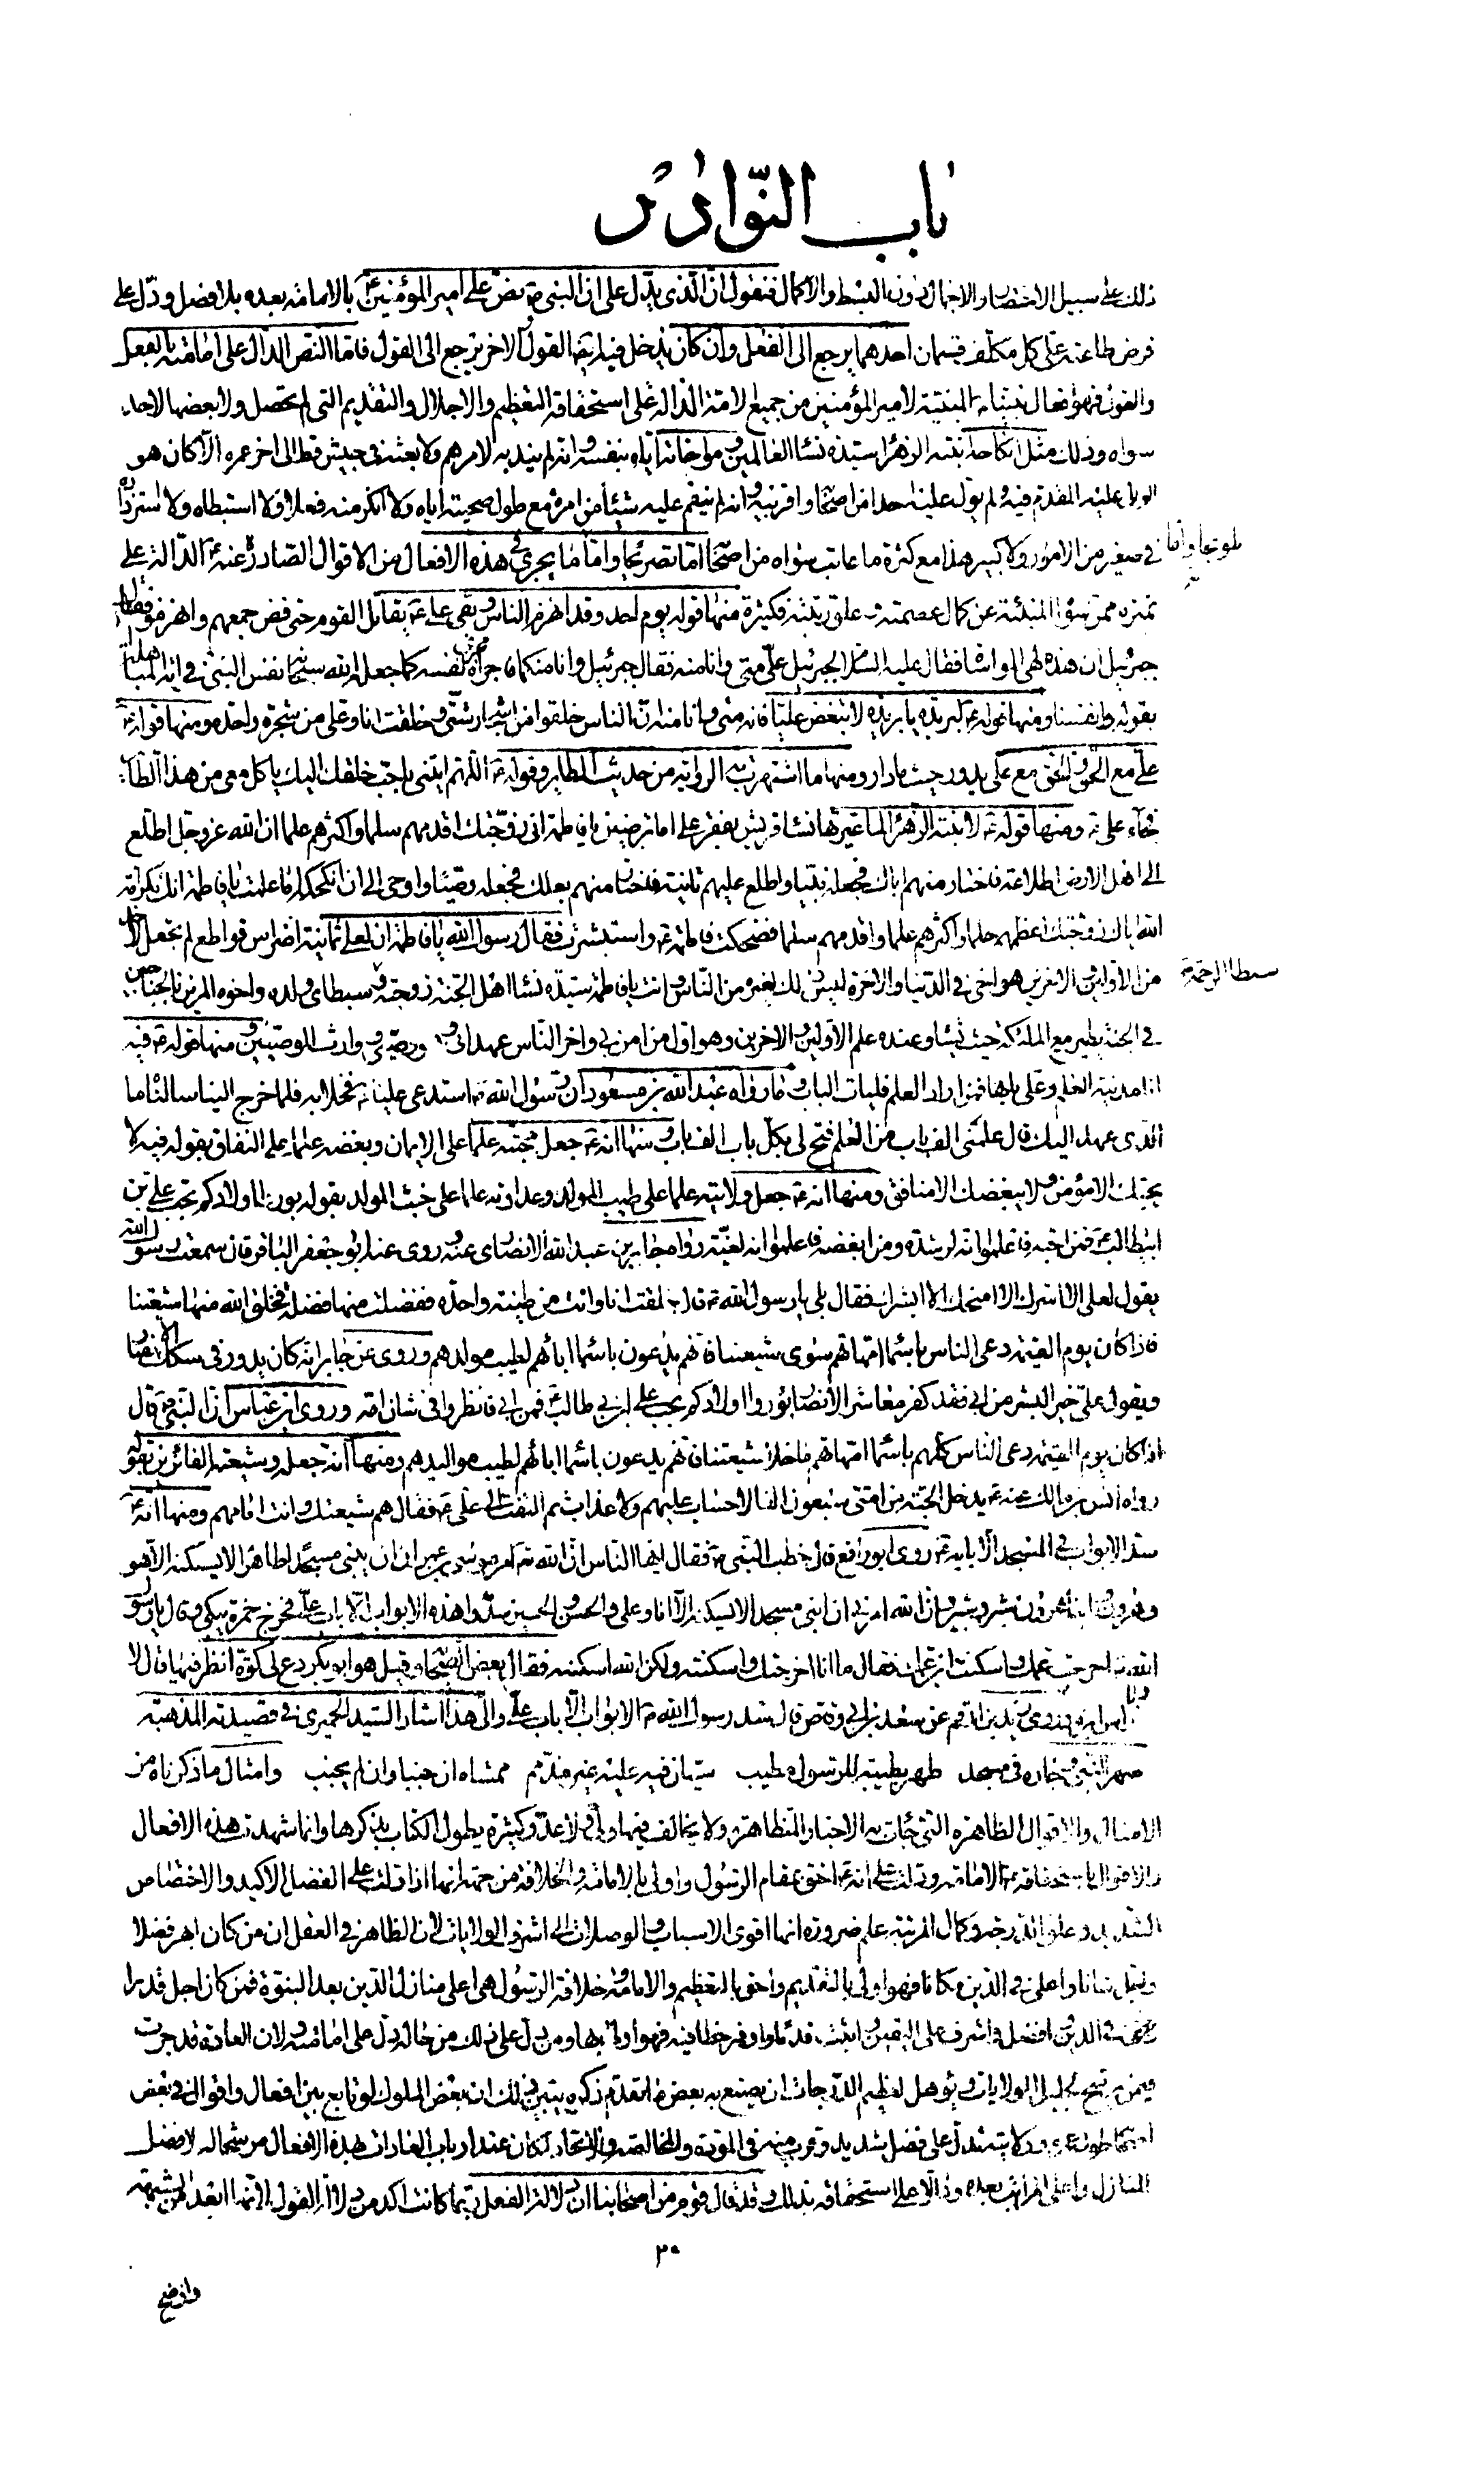 باب النّوادر
ذلك على سبيل الاختصار والاجمال دون البسط والاكمال فنقول انّ الّذى يدّل على انّ النبى ص نصّ على امير المؤمنين ع بالامامة بعده بلا فصل ودّل على
فرض طاعته على كل مكلّف قسمان احدهما يرجع الى الفعل وان كان يدخل فيه ايضا القول والاخر يرجع الى القول فامّا النص الدال على امامته بالفعل
والقول فهو افعال نبيّنا ص المبيّنة لامير المؤمنين من جميع الامّة الدّالة على استحقاقه التعظيم والاجلال والتقديم التى لم تحصل ولا بعضها لاحد
سواه وذلك مثل انكاحه ابنته الزهراء سيّدة نساء العالمين ومواخاته ايّاه بنفسه وانه لم يندبه لامر مهم ولا بعثه فى جيش قط الى اخر عمره الّا كان هو
الوالى عليه المقدم فيه ولم يولّ عليه احدا من اصحابه واقربيه وانه لم ينقم عليه شيئا من امره مع طول صحبته اياه ولا انكر منه فعلا ولا استبطاه ولا استزاده
فى صغير من الامور ولا كبير هذا مع كثرة ما عاتب سواه من اصحابه امّا تصريحا وامّا تلويحا وامّا ما يجرى مجرى هذه الافعال من الاقوال الصّادرة عنه ع الدّالة على
تميزه ممن سواه المنبئة عن كمال عصمته وعلوّ رتبته فكثيرة منها قوله يوم احد وقد انهزم الناس وبقى على ع يقاتل القوم حتى فض جمعهم وانهزموا فقال
جبرئيل ان هذه لهى المواساة فقال عليه السّلام لجبرئيل علىّ منّى وانا منه فقال جبرئيل وانا منكما فاجراه مجرى نفسه كما جعله الله سبحانه نفس النبىّ فى اية المباهلة
بقوله وانفسنا ومنها قوله ع لبريدة يا بريدة لا تبغض عليّا فانه منى وانا منه انّ الناس خلقوا من اشجار شتّى وخلقت انا وعلى من شجرة واحدة ومنها قوله ع
علىّ مع الحق والحق مع على يدور حيث ما دار ومنها ما اشتهرت به الرواية من حديث الطاير وقوله ع اللّهم ايتنى باحبّ خلقك اليك ياكل معى من هذا الطاير
فجاء على ع ومنها قوله ع لابنته الزهراء لما عيّرتها نساء قريش بفقر على اما ترضين يا فاطمة انى زوّجتك اقدمهم سلما واكثرهم علما ان الله عزوجل اطّلع
الى اهل الارض اطلاعة فاختار منهم اباك فجعله نبيّا واطلع عليهم ثانية فاختار منهم بعلك فجعله وصيّا واوحى الى ان انكحكه اما علمت يا فاطمة انك بكرامة
الله اياك زوّجتك اعظمهم حلما واكثرهم علما واقدمهم سلما فضحكت فاطمة ع واستبشرت فقال رسول الله يا فاطمة ان لعلى ثمانية اضراس قواطع لم تجعل لاحد
من الاولين والاخرين هو اخى فى الدّنيا والاخرة ليس ذلك لغيره من النّاس وانت يا فاطمة سيّدة نساء اهل الجنّة زوجته وسبطا الرحمة سبطاى ولده واخوه المزين بالجناحين
فى الجنة يطير مع الملئكة حيث يشاء وعنده علم الاوّلين والاخرين وهو اوّل من امن بى واخر النّاس عهدا بى وهو وصيّى ووارث الوصيّين ومنها قوله ع فيه
انا مدينة العلم وعلى بابها فمن اراد العلم فليات الباب وما رواه عبد الله بن مسعود ان رسول الله ص استدعى عليّا ع فخلا به فلما خرج الينا سالناه ما
الّذى عهد اليك قال علمنى الف باب من العلم فتح لى بكلّ باب الف باب ومنها انه ع جعل محبّته علما على الايمان وبغضه علما على النفاق بقوله فيه لا
يحبّك الا مؤمن ولا يبغضك الا منافق ومنها انه ع جعل ولايته علما على طيب المولد وعداوته علما على خبث المولد بقوله بوروا اولادكم بحبّ على بن
ابيطالب ع فمن احبّه فاعلموا انه لرشدة ومن ابغضه فاعلموا انه لغيّة رواه جابر بن عبد الله الانصارى عنه وروى عنه ابو جعفر الباقر قال سمعت رسول الله
يقول لعلى الا اسرك الا امنحك الا ابشرك فقال بلى يا رسول الله ص قال خلقت انا وانت من طينة واحدة ففضلت منها فضلة فخلق الله منها شيعتنا
فاذا كان يوم القيمة دعى الناس باسماء امّهاتهم سوى شيعتنا فانهم يدعون باسماء ابائهم لطيب مولدهم وروى عن جابر انه كان يدور فى سكك الانصار
ويقول علىّ خير البشر من ابى فقد كفر معاشر الانصار بوروا اولادكم بحب على ابن ابى طالب ع فمن ابى فانظروا فى شان امّه وروى ابن عبّاس انّ النّبىّ ص قال
اذا كان يوم القيمة دعى الناس كلهم باسماء امّهاتهم ما خلا شيعتنا فانهم يدعون باسماء ابائهم لطيب مواليدهم ومنها انّه جعله وشيعته الفائزين بقوله
رواه انس بن مالك عنه ع يدخل الجنّة من امّتى سبعون الفا لا حساب عليهم ولا عذاب ثم التفت الى على ع فقال هم شيعتك وانت امامهم ومنها انّه ع
سدّ الابواب فى المسجد الّا بابه ع روى ابو رافع قال خطب النّبى ص فقال ايّها النّاس انّ الله ع امر موسى بن عمران ان يبنى مسجدا طاهرا لا يسكنه الّا هو
وهرون وابنا هرون شبر وشبير وانّ الله امرنى ان ابنى مسجدا لا يسكنه الّا انا وعلى والحسن والحسين سدّوا هذه الابواب الّا باب علىّ فخرج حمزة يبكى وقال يا رسول
الله اخرجت عمك واسكنت ابن عمك فقال ما انا اخرجتك واسكنته ولكن الله اسكنه فقال بعض الصّحابة وقيل هو ابو بكر دع لى كوّة انظر فيها قال لا
ولا راس ابرة وروى زيد بن ارقم عن سعد بن ابى وقاص قال سد رسول الله ص الابواب الّا باب علىّ والى هذا اشار السّيد الحميرى فى قصيدته المذهبة
صهر النّبى وجاره فى مسجد طهر بطيبة للرسول مطيب سيّان فيه عليه غير مذمّم ممشاه ان جنبا وان لم يجنب وامثال ما ذكرناه من
الافعال والاقوال الظاهرة التى جاءت به الاخبار المتظاهرة ولا يخالف فيها ولىّ ولا عدوّ وكثيرة يطول الكتاب بذكرها وانما شهدت هذه الافعال
والاقوال باستحقاقه ع الامامة ودلت على انه ع احق بمقام الرّسول واولى بالامامة والخلافة من جهة انها اذا دلت على الفضل الاكيد والاختصاص
الشديد وعلوّ الدّرجة وكمال المرتبة علم ضرورة انها اقوى الاسباب والوصلات الى اشرف الولايات لانّ الظاهر فى العقل ان من كان ابهر فضلا
واجل شانا واعلى فى الدّين مكانا فهو اولى بالتقديم واحق بالتعظيم والامامة وخلافة الرّسول هى اعلى منازل الدّين بعد النبوّة فمن كان اجل قدرا
فى الدين وافضل واشرف على اليقين واثبت قدما واوفر حظا فيه فهو اولى بها ومن دلّ على ذلك من حاله دلّ على امامته ولان العادة قد جرت
فيمن يرشح لجليل الولايات ويوهل لعظيم الدّرجات ان يصنع به بعض ما تقدّم ذكره يبيّن ذلك ان بعض الملوك لو تابع بين افعال واقوال فى بعض
اصحابه طول عمره وولايته يدلّ على فضل شديد وقرب منه فى المودّة والمخالصة والاتحاد لكان عند ارباب العادات بهذه الافعال مرشحا له لافضل
المنازل واعلى المراتب بعده ودالّا على استحقاقه بذلك وقد قال قوم من اصحابنا انّ دلالة الفعل ربما كانت اكد من دلالة القول لانّها ابعد من الشبهة
٣٠
واوضح